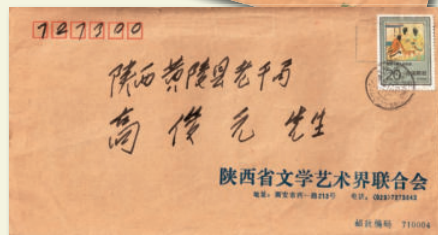 727300
陕西黄陵县老干局
高俊元 先生
20
陕西省文学艺术界联合会
地址：西安市西一路210号 电话：(029)7273043
邮政编码 710004